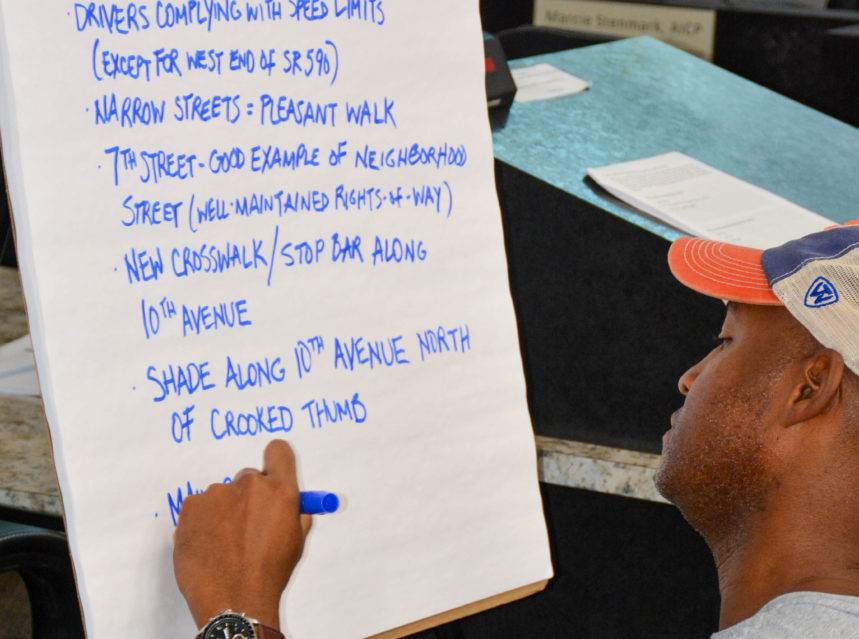 Marcia Stenmark, AICP
DRIVERS COMPLYING WITH SPEED LIMITS
(EXCEPT FOR WEST END OF SR 590)
· NARROW STREETS = PLEASANT WALK
· 7TH STREET - GOOD EXAMPLE OF NEIGHBORHOOD
STREET (WELL-MAINTAINED RIGHTS-OF-WAY)
· NEW CROSSWALK/STOP BAR ALONG
10TH AVENUE
· SHADE ALONG 10TH AVENUE NORTH
OF CROOKED THUMB